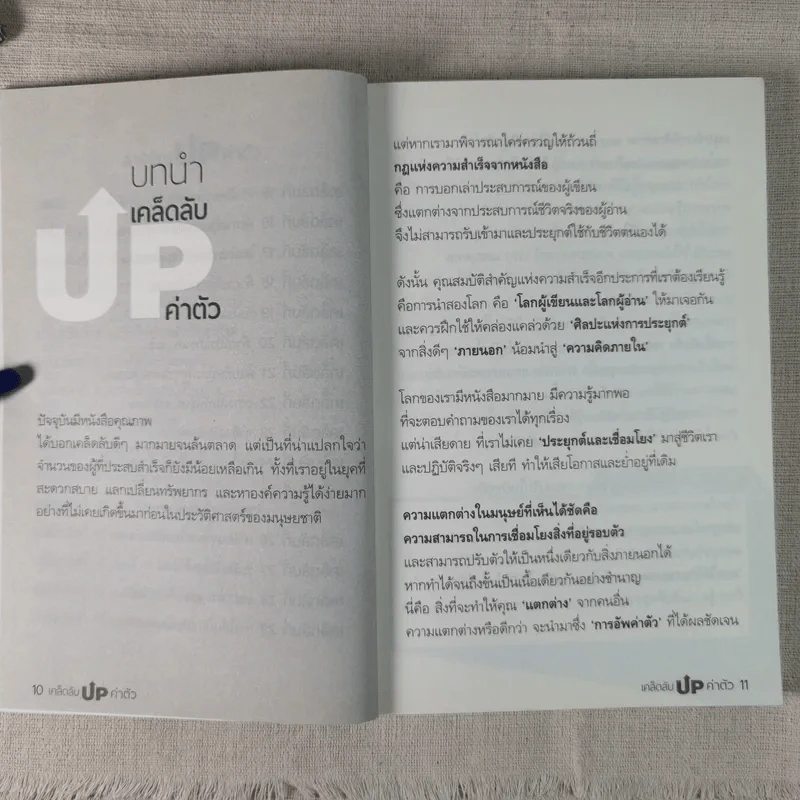 บทนำ
เคล็ดลับ
UP
ค่าตัว
ปัจจุบันมีหนังสือคุณภาพ
ได้บอกเคล็ดลับดีๆ มากมายจนล้นตลาด แต่เป็นที่น่าแปลกใจว่า
จำนวนของผู้ที่ประสบสำเร็จก็ยังมีน้อยเหลือเกิน ทั้งที่เราอยู่ในยุคที่
สะดวกสบาย แลกเปลี่ยนทรัพยากร และหาองค์ความรู้ได้ง่ายมาก
อย่างที่ไม่เคยเกิดขึ้นมาก่อนในประวัติศาสตร์ของมนุษยชาติ
10 เคล็ดลับ UP ค่าตัว
แต่หากเรามาพิจารณาใคร่ครวญให้ถ้วนถี่
กฎแห่งความสำเร็จจากหนังสือ
คือ การบอกเล่าประสบการณ์ของผู้เขียน
ซึ่งแตกต่างจากประสบการณ์ชีวิตจริงของผู้อ่าน
จึงไม่สามารถรับเข้ามาและประยุกต์ใช้กับชีวิตตนเองได้
ดังนั้น คุณสมบัติสำคัญแห่งความสำเร็จอีกประการที่เราต้องเรียนรู้
คือการนำสองโลก คือ ‘โลกผู้เขียนและโลกผู้อ่าน’ ให้มาเจอกัน
และควรฝึกใช้ให้คล่องแคล่วด้วย ‘ศิลปะแห่งการประยุกต์’
จากสิ่งดีๆ ‘ภายนอก’ น้อมนำสู่ ‘ความคิดภายใน’
โลกของเรามีหนังสือมากมาย มีความรู้มากพอ
ที่จะตอบคำถามของเราได้ทุกเรื่อง
แต่น่าเสียดาย ที่เราไม่เคย ‘ประยุกต์และเชื่อมโยง’ มาสู่ชีวิตเรา
และปฏิบัติจริงๆ เสียที ทำให้เสียโอกาสและย่ำอยู่ที่เดิม
ความแตกต่างในมนุษย์ที่เห็นได้ชัดคือ
ความสามารถในการเชื่อมโยงสิ่งที่อยู่รอบตัว
และสามารถปรับตัวให้เป็นหนึ่งเดียวกับสิ่งภายนอกได้
หากทำได้จนถึงขั้นเป็นเนื้อเดียวกันอย่างชำนาญ
นี่คือ สิ่งที่จะทำให้คุณ ‘แตกต่าง’ จากคนอื่น
ความแตกต่างหรือดีกว่า จะนำมาซึ่ง ‘การอัพค่าตัว’ ที่ได้ผลชัดเจน
เคล็ดลับ UP ค่าตัว 11